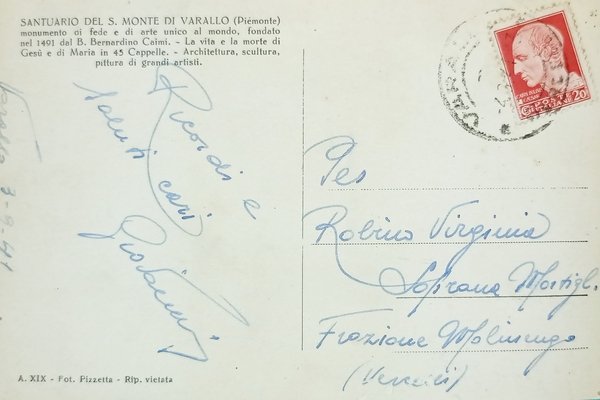 SANTUARIO DEL S. MONTE DI VARALLO (Piemonte)
monumento di fede e di arte unico al mondo, fondato
nel 1491 dal B. Bernardino Caimi. - La vita e la morte di
Gesù e di Maria in 45 Cappelle. - Architettura, scultura,
pittura di grandi artisti.
Ricordi e
saluti cari
Giovanni
Varallo 3-9-41
POSTE
ITALIANE 20
Per
Robino Virginia
Soprana Mortigl.
Frazione Molinengo
(Vercelli)
A. XIX - Fot. Pizzetta - Rip. vietata